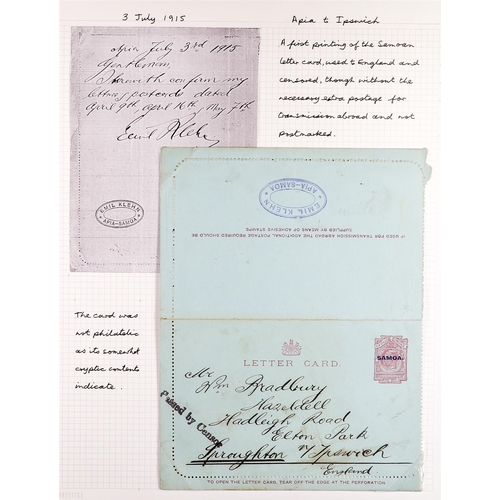 3 July 1915
Apia to Ipswich
A first printing of the Samoan
letter card, used to England and
censored, though without the
necessary extra postage for
transmission abroad and not
postmarked.
Apia July 3rd 1915
Gentlemen,
I herewith confirm my
letters, postcards dated
April 9th, April 10th, May 7th
Emil Klehn
EMIL KLEHN
APIA-SAMOA
EMIL KLEHN
APIA-SAMOA
IF USED FOR TRANSMISSION ABROAD THE ADDITIONAL POSTAGE REQUIRED SHOULD BE
SUPPLIED BY MEANS OF ADHESIVE STAMPS
The card was
not philatelic
as its somewhat
cryptic contents
indicate.
LETTER CARD.
SAMOA.
Mr
Wm Bradbury
Hazeldell
Hadleigh Road
Elton Park
Sproughton n/ Ipswich
England
Passed by Censor
TO OPEN THE LETTER CARD, TEAR OFF THE EDGE AT THE PERFORATION.